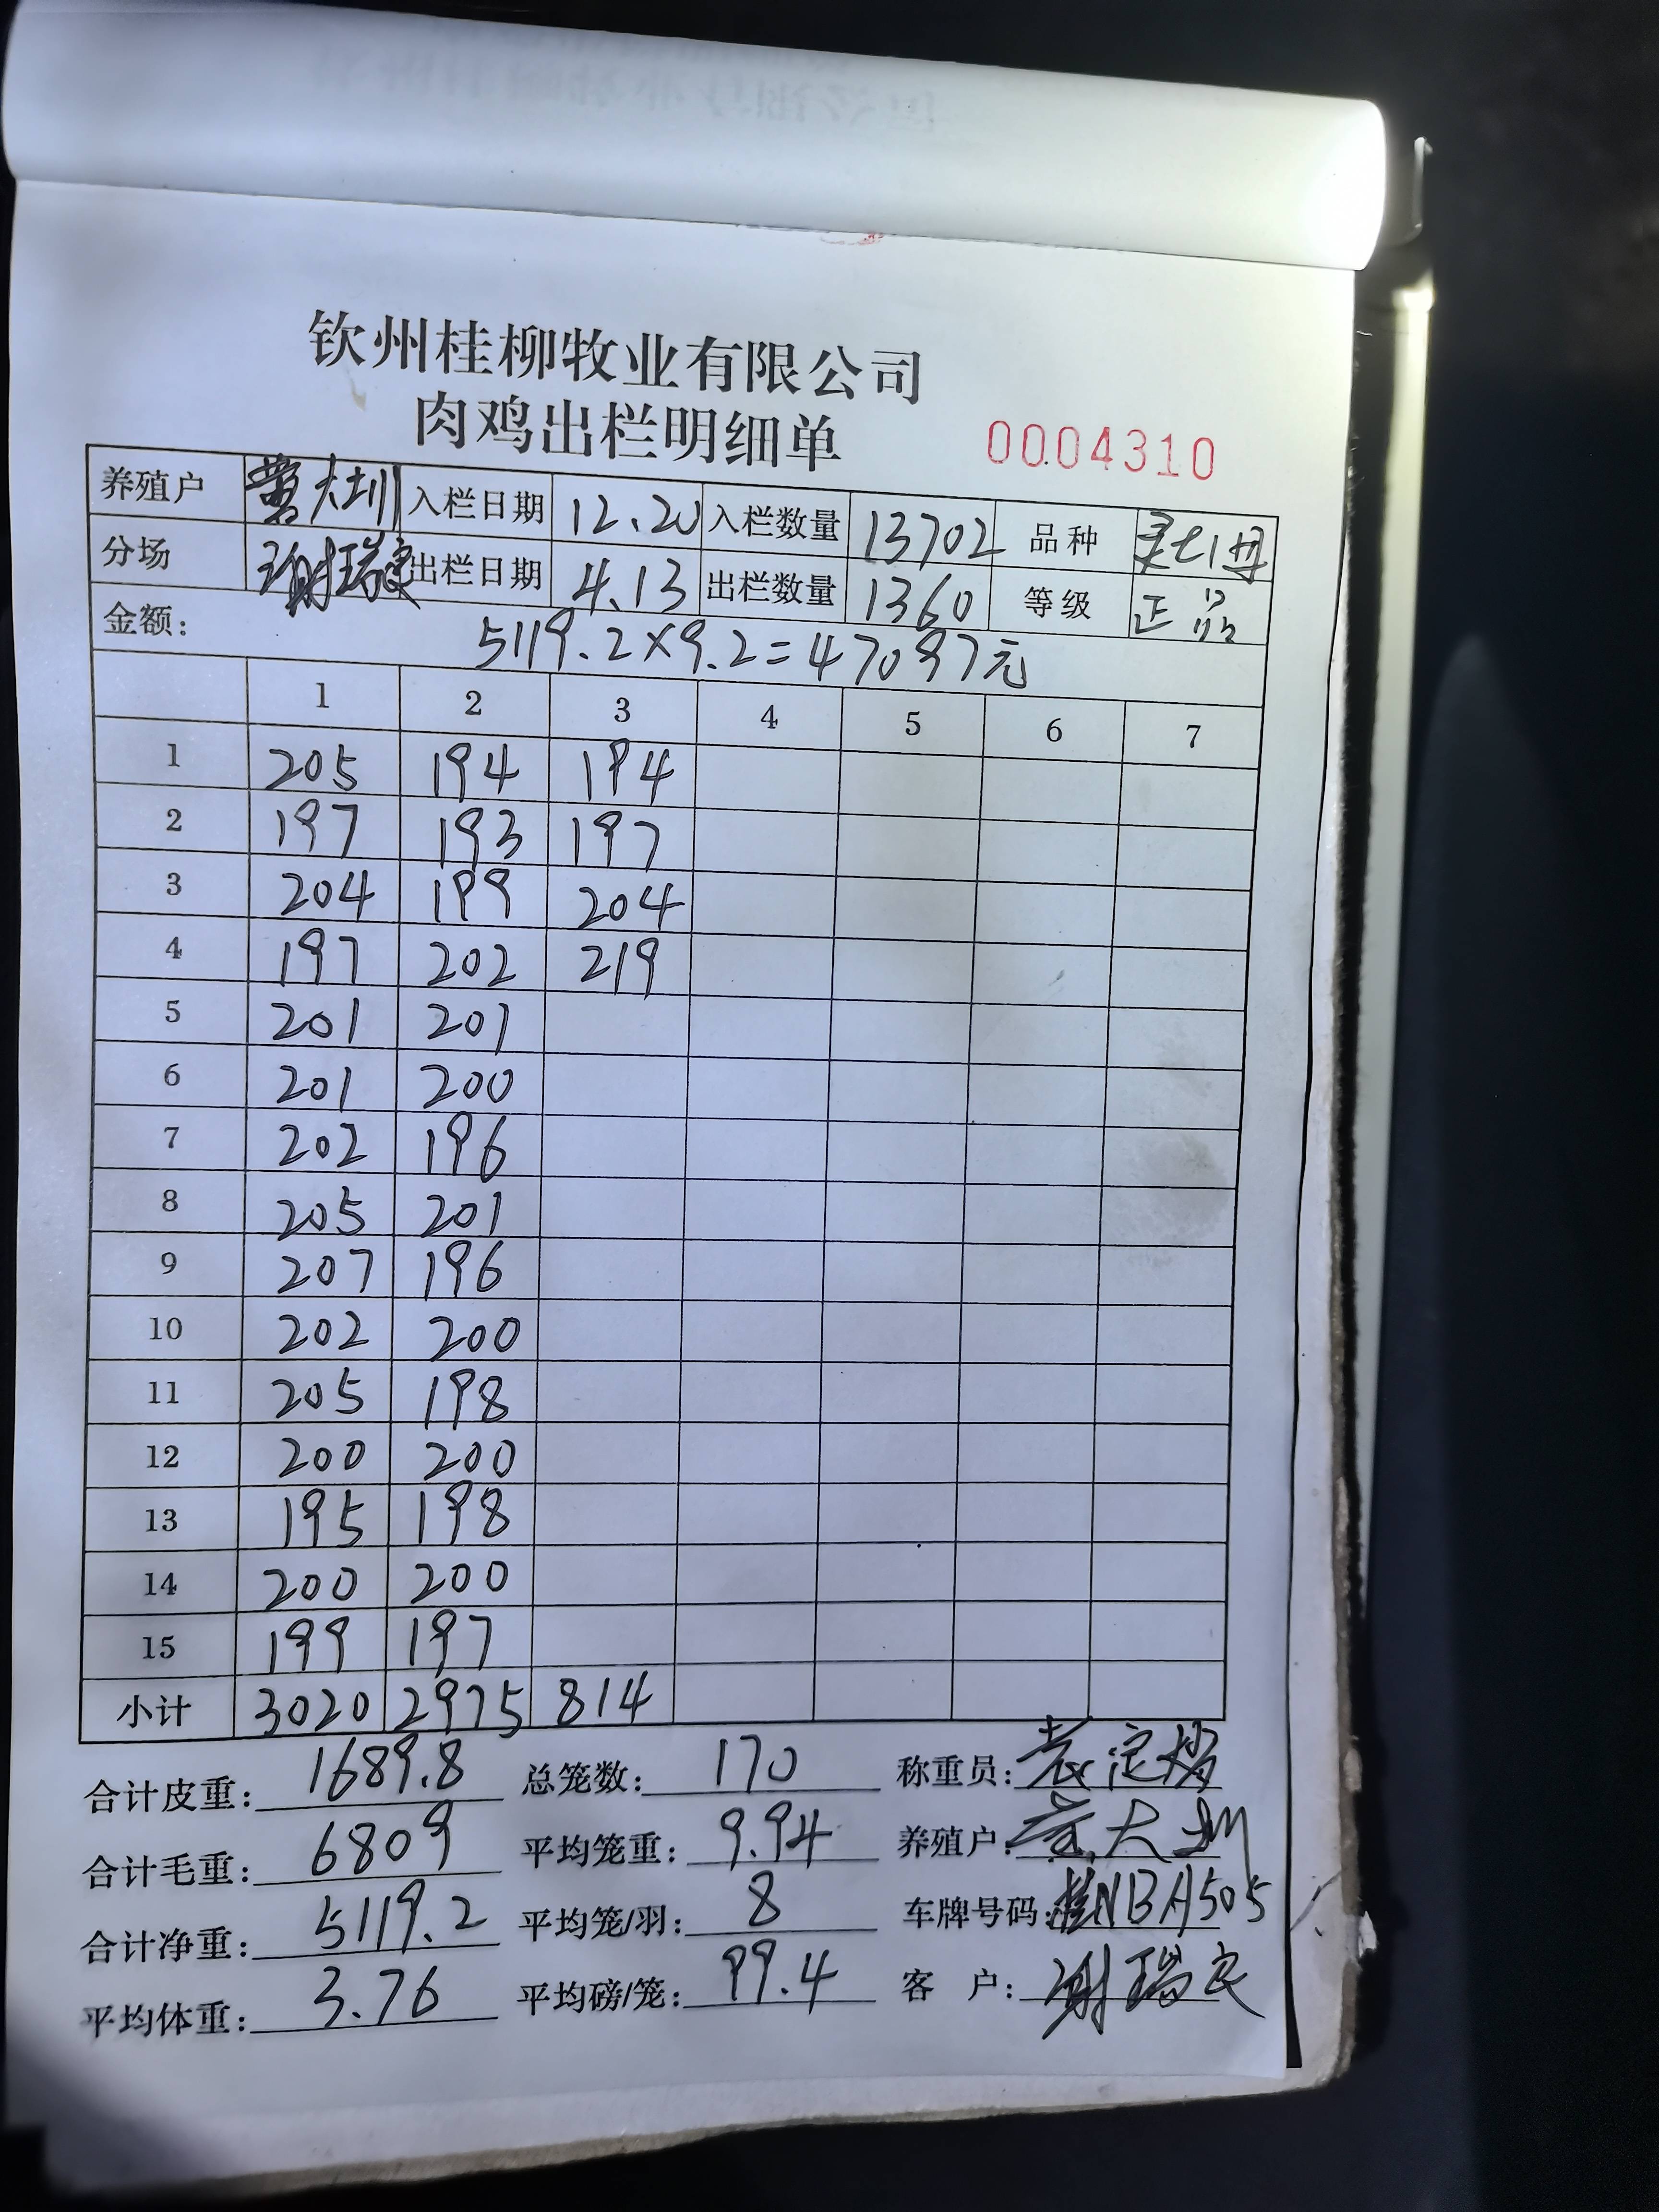 钦州桂柳牧业有限公司
肉鸡出栏明细单 0004310
养殖户 黄大圳 入栏日期 12.20 入栏数量 13702 品种
分场 谢瑞良 出栏日期 4.13 出栏数量 1360 等级 正品
金额: 5119.2×9.2=47097元
1 2 3 4 5 6 7
1 205 194 194
2 197 193 197
3 204 199 204
4 197 202 219
5 201 201
6 201 200
7 202 196
8 205 201
9 207 196
10 202 200
11 205 198
12 200 200
13 195 198
14 200 200
15 199 197
小计 3020 2975 814
合计皮重: 1689.8 总笼数: 170 称重员:
合计毛重: 6809 平均笼重: 9.94 养殖户: 黄大圳
合计净重: 5119.2 平均笼/羽: 8 车牌号码: 桂NBA505
平均体重: 3.76 平均磅/笼: 99.4 客 户: 谢瑞良